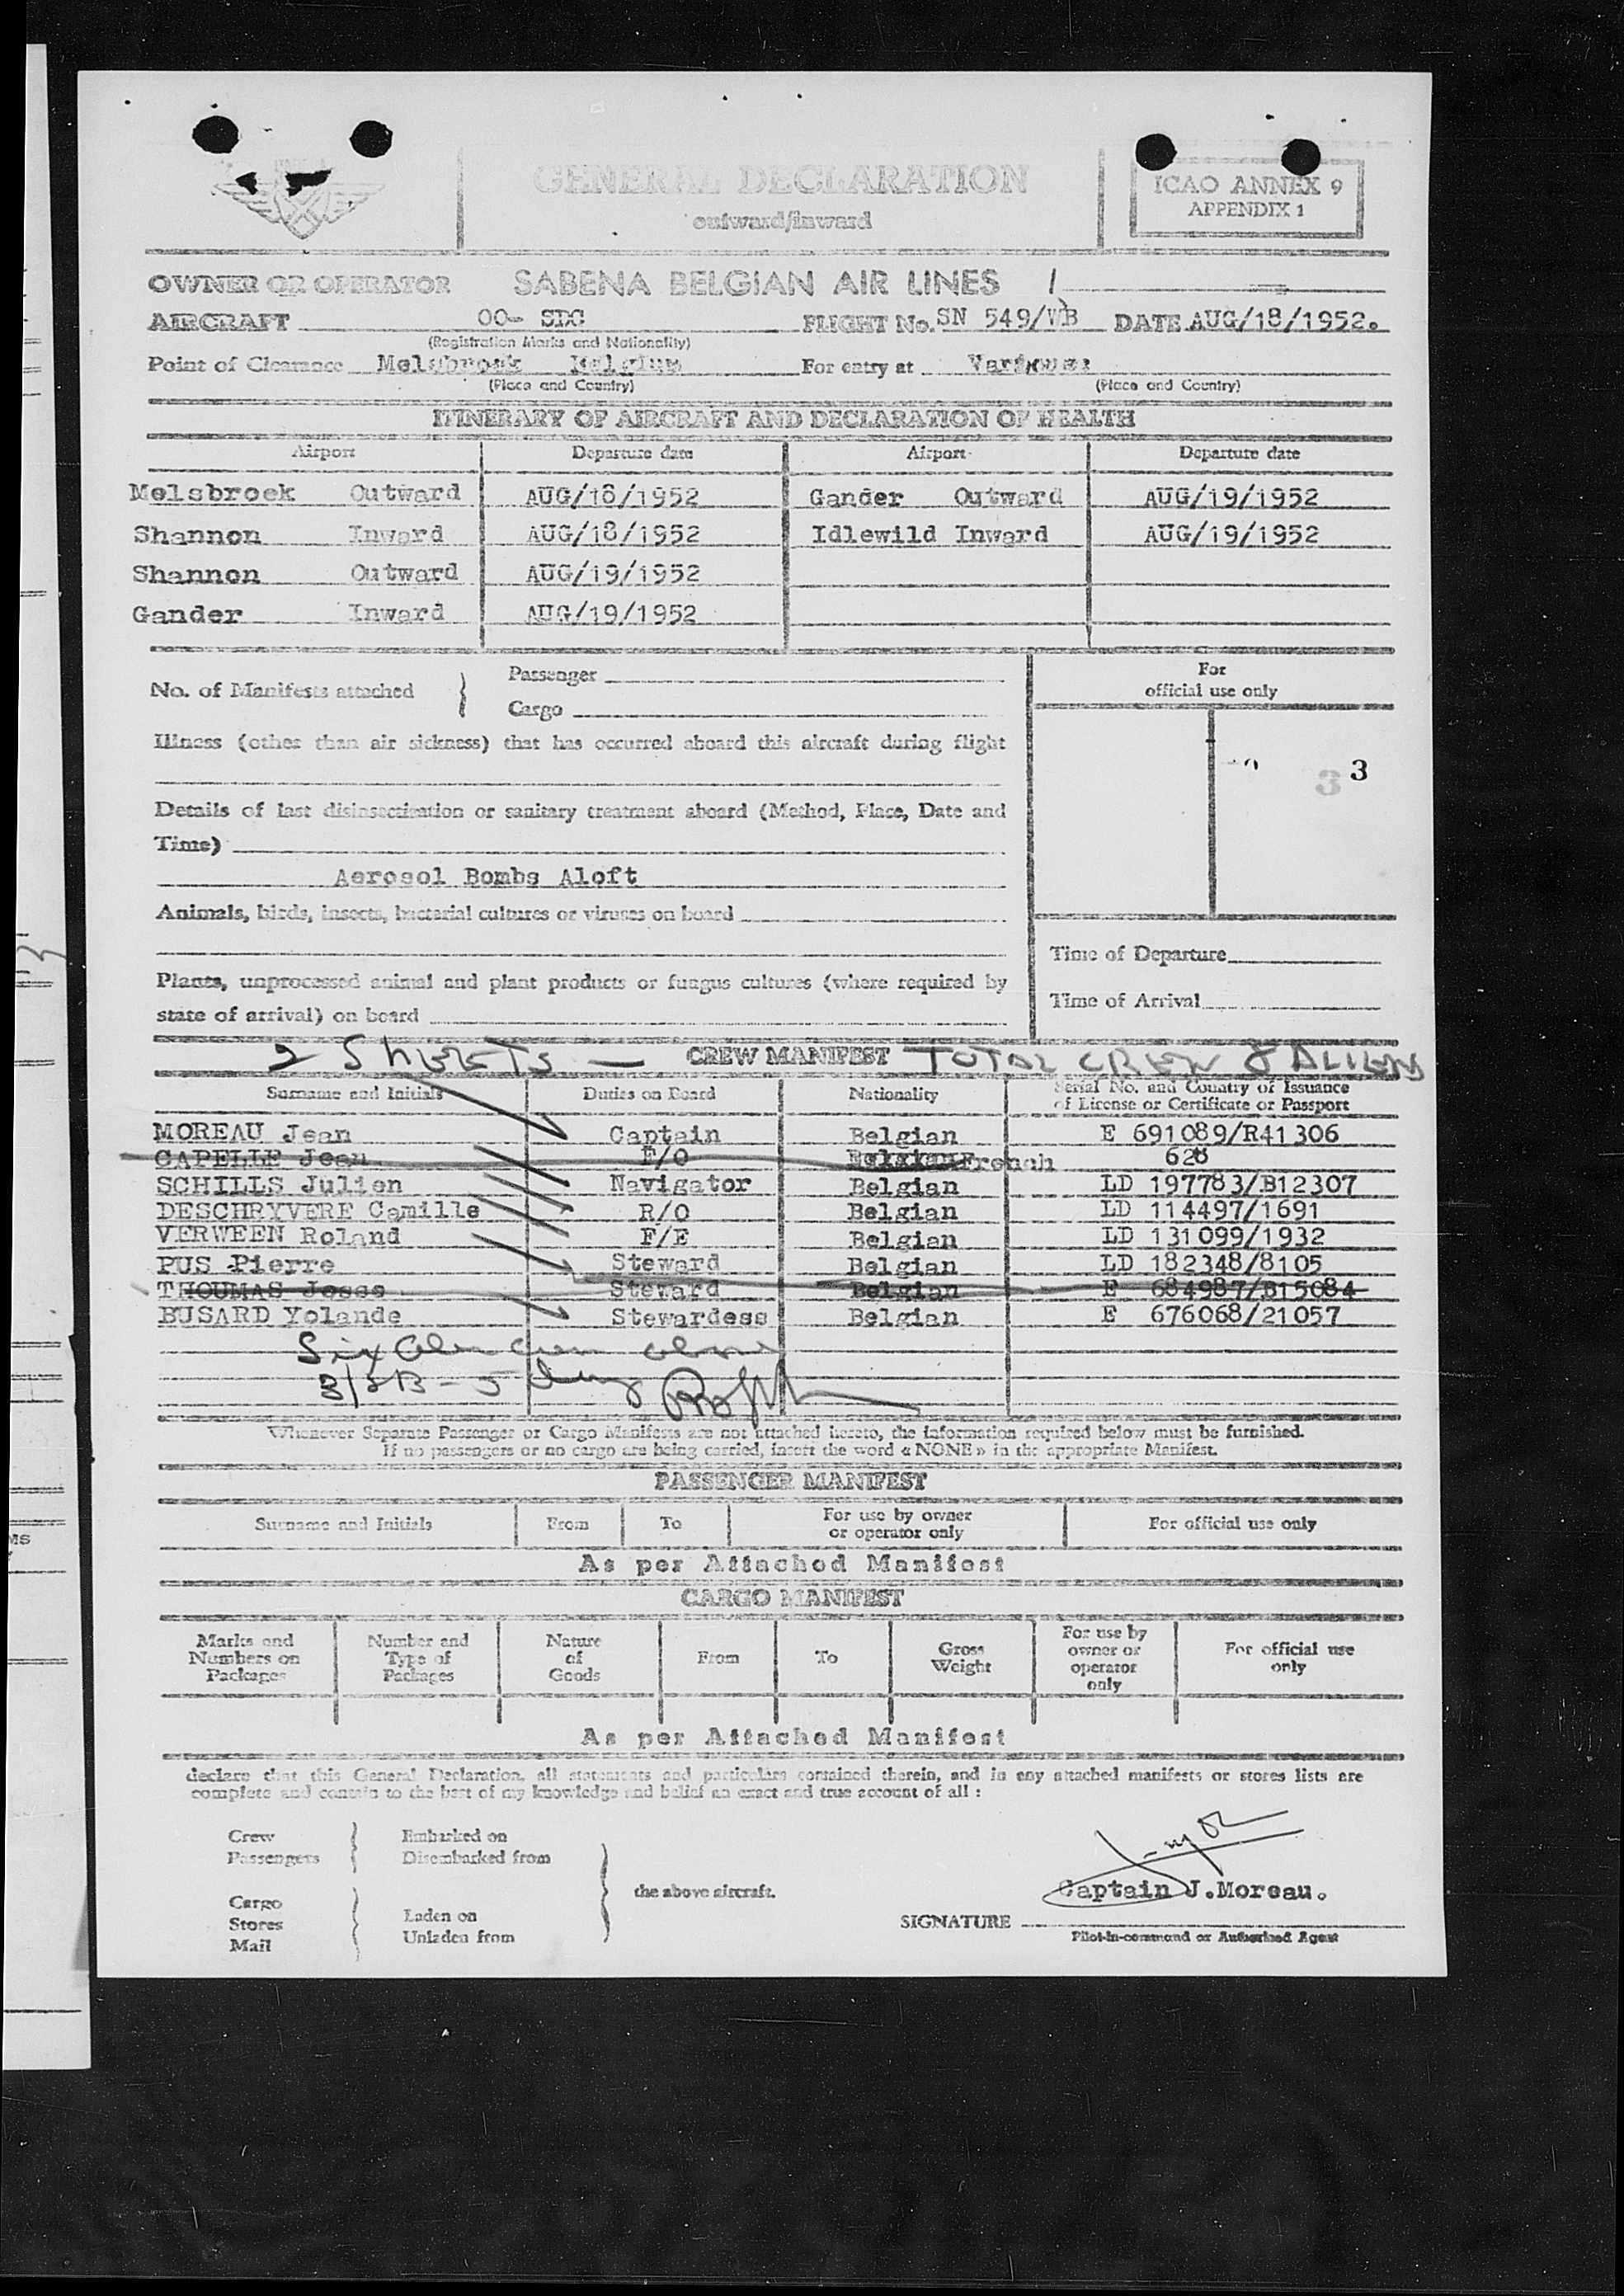 GENERAL DECLARATION
outward/inward
ICAO ANNEX 9
APPENDIX 1
OWNER OR OPERATOR SABENA BELGIAN AIR LINES
AIRCRAFT OO- SDC FLIGHT No. SN 549/VB DATE AUG/18/1952.
(Registration Marks and Nationality)
Point of Clearance Melsbroek Belgium For entry at Various
(Place and Country) (Place and Country)
ITINERARY OF AIRCRAFT AND DECLARATION OF HEALTH
Airport Departure date Airport Departure date
Melsbroek Outward AUG/18/1952 Gander Outward AUG/19/1952
Shannon Inward AUG/18/1952 Idlewild Inward AUG/19/1952
Shannon Outward AUG/19/1952
Gander Inward AUG/19/1952
No. of Manifests attached } Passenger
Cargo
For
official use only
Illness (other than air sickness) that has occurred aboard this aircraft during flight
3 3
Details of last disinsectization or sanitary treatment aboard (Method, Place, Date and
Time)
Aerosol Bombs Aloft
Animals, birds, insects, bacterial cultures or viruses on board
Time of Departure
Plants, unprocessed animal and plant products or fungus cultures (where required by
state of arrival) on board
Time of Arrival
2 SHEETS — CREW MANIFEST TOTAL CREW 8 ALIENS
Surname and Initials Duties on Board Nationality Serial No. and Country of Issuance
of License or Certificate or Passport
MOREAU Jean Captain Belgian E 691089/R41306
CAPELLE Jean F/O Belgian French 628
SCHILLS Julien Navigator Belgian LD 197783/B12307
DESCHRYVERE Camille R/O Belgian LD 114497/1691
VERWEEN Roland F/E Belgian LD 131099/1932
PUS Pierre Steward Belgian LD 182348/8105
THOUMAS Josse Steward Belgian E 684987/B15084
BUSARD Yolande Stewardess Belgian E 676068/21057
Six
Whenever Separate Passenger or Cargo Manifests are not attached hereto, the information required below must be furnished.
If no passengers or no cargo are being carried, insert the word « NONE » in the appropriate Manifest.
PASSENGER MANIFEST
Surname and Initials From To For use by owner
or operator only For official use only
As per Attached Manifest
CARGO MANIFEST
Marks and
Numbers on
Packages Number and
Type of
Packages Nature
of
Goods From To Gross
Weight For use by
owner or
operator
only For official use
only
As per Attached Manifest
declare that this General Declaration, all statements and particulars contained therein, and in any attached manifests or stores lists are
complete and contain to the best of my knowledge and belief an exact and true account of all :
Crew
Passengers } Embarked on
Disembarked from
Cargo
Stores
Mail } Laden on
Unladen from
} the above aircraft.
Captain J.Moreau.
SIGNATURE
Pilot-in-command or Authorised Agent